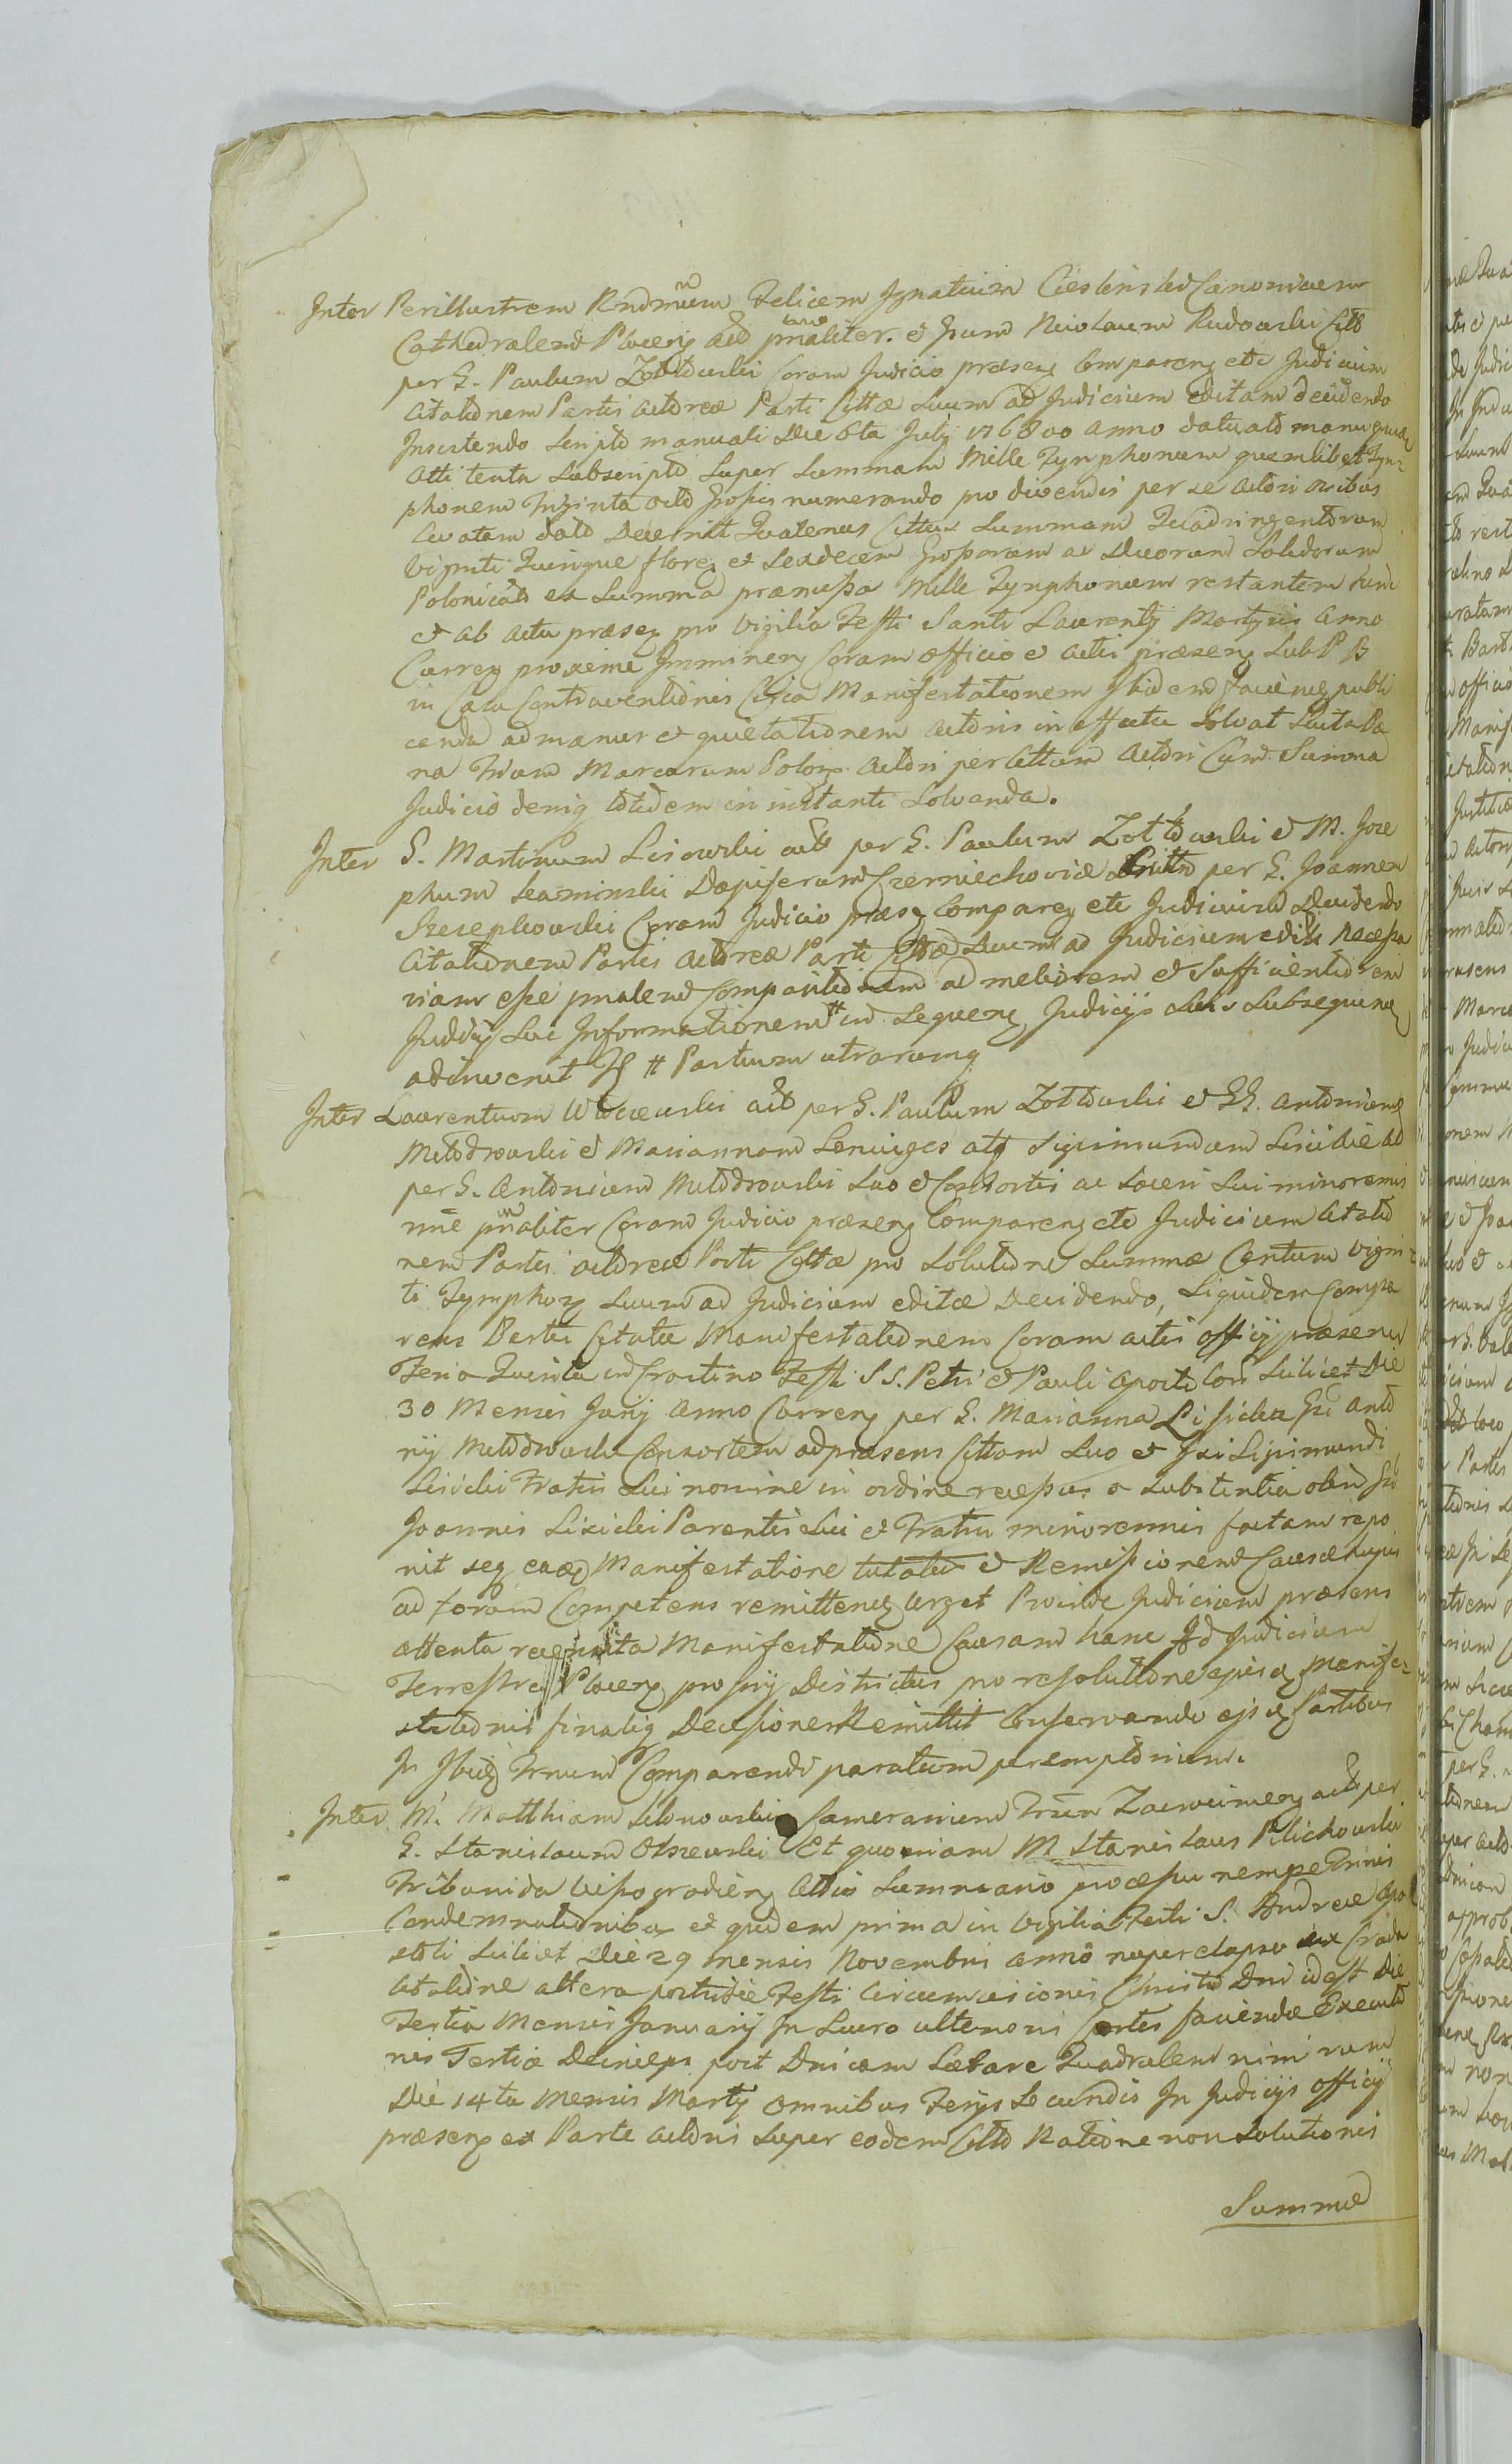 Inter Perillustrem Rndmum Felicem Ignatium Cieslinski Canonicum
Cathedralem Plocens act pnaliter. et Gsum Nicolaum Rudowski Citt
per G. Paulum Zołtowski Coram Judicio præsenq comparenq etc Judicium
Citationem Partis Actoreæ Parti Cittæ suum ad Judicium editam decidendo
Insistendo scripto manuali Die 6ta July 1768 anno datu ato manu
Atti tento subscripto super summam Mille Tynphonum quemlibet Tyn-
phonem Triginta octo grossis numerando pro divendis per se Actori
levatam dato Decernit Quatenus Cittus summam Quadringentorum
Viginti Quinque floren et sexdecem grossorum ac Duorum solidorum
Polonicals ex summa præmissa Mille Tynphonum restantem
et ab actu præsen pro Vigilia Festi Santi Laurentij Martyris anno
Curren proxime imminen Coram officio et actis præsen sub P B
in Casu Contraventionis Circa Manifestationem Ibidem facienq publi
canda ad manus et quietationem Actoris in effectu solvat Luita Pæ
na Trium Marcarum Polon. Actori per Cittum Actori Cum Summa
Judicio deniq totidem in instanti solvenda.
Inter G. Martinum Lisowski act per G. Paulum Zołtowski et M. Jose
phum Dapiferum Czerniechoviæ Citt per G. Joannem
Coram Judicio præsen comparen etc Judicium Decidendo
Citationem Partis Actoreæ Parti Cittæ suum ad Judicium editt necessa
riam esse pnalem Compositionem ad meliorem et sufficientiorem
Judicij sui Informationem # in sequen Judicijs suis subsequen
adinvenit # Partium utrarumq
Inter Laurentium act per G. Paulum Zołtowski et GG. Antonium
Młodrowski et Mariannam Coniuges atq Sigismundum Lisicki citt
per G. Antonium Młodrowski suo et Consortis ac soceri sui minorennis
nne pnaliter Coram Judicio præsen comparen etc Judicium Citatio
nem Partis Actoreæ Parti Cittæ pro solutione summæ Centum Vigin-
ti Tymphon suum ad Judicium editæ Decidendo, siquidem Compa
rens Pertis Citatæ Manifestationem Coram actis officij præsen
Feria Quinta in Crastino Festi S S. Petri et Pauli Apostolor scilicet Die
30 Mensis Junij Anno Curren per G. Marianna Lisicka Gsi Anto
nij Młodrowski Consortem ad præsens Cittam suo et Gsi Sigismundi
Lisicki Fratris sui nomine in ordine recessus a substantia olim Gsi
Joannis Lisicki Parentis sui et Fratris minorennis factam repo
nit seq eadq Manifestatione tutatur et Remissionem Causæ hujus
ad forum Competens remittenq urget Proinde Judicium præsens
attenta Manifestatione Causam hanc Ad Judicium
Terrestre Plocen proprij Districtus pro resolutione ejusdq Manife-
stationis finaliq Decisione Remittit Conservando ejusdq Partibus
In Ibidq Trnum Comparendi paratum peremptorium.
Inter M. Matthiam Camerarium Trum Zacweimen act per
G. Stanislaum Olszewski Et quoniam M Stanislaus Pilichowski
Tribunida Wissogrodien Cittus summario processu nempe Trinis
Condemnationibus et quidem prima in Vigilia Festi S. Andreæ Apo
stoli scilicet Die 29 mensis Novembris anno nuper elapso
Citatione altera postridie Festi Circumcisionis Christi Dni id est Die
Tertia Mensis Januarij In Lucro ulterioris Partis faciendæ Executio
nis Tertia Deinceps post Dnicam Lætare Quadralem nimirum
Die 14ta Mensis Martij omnibus Ferijs secundis In Judicijs officij
præsen ex Parte Actoris super eodem Citto Ratione non solutionis
Summæ